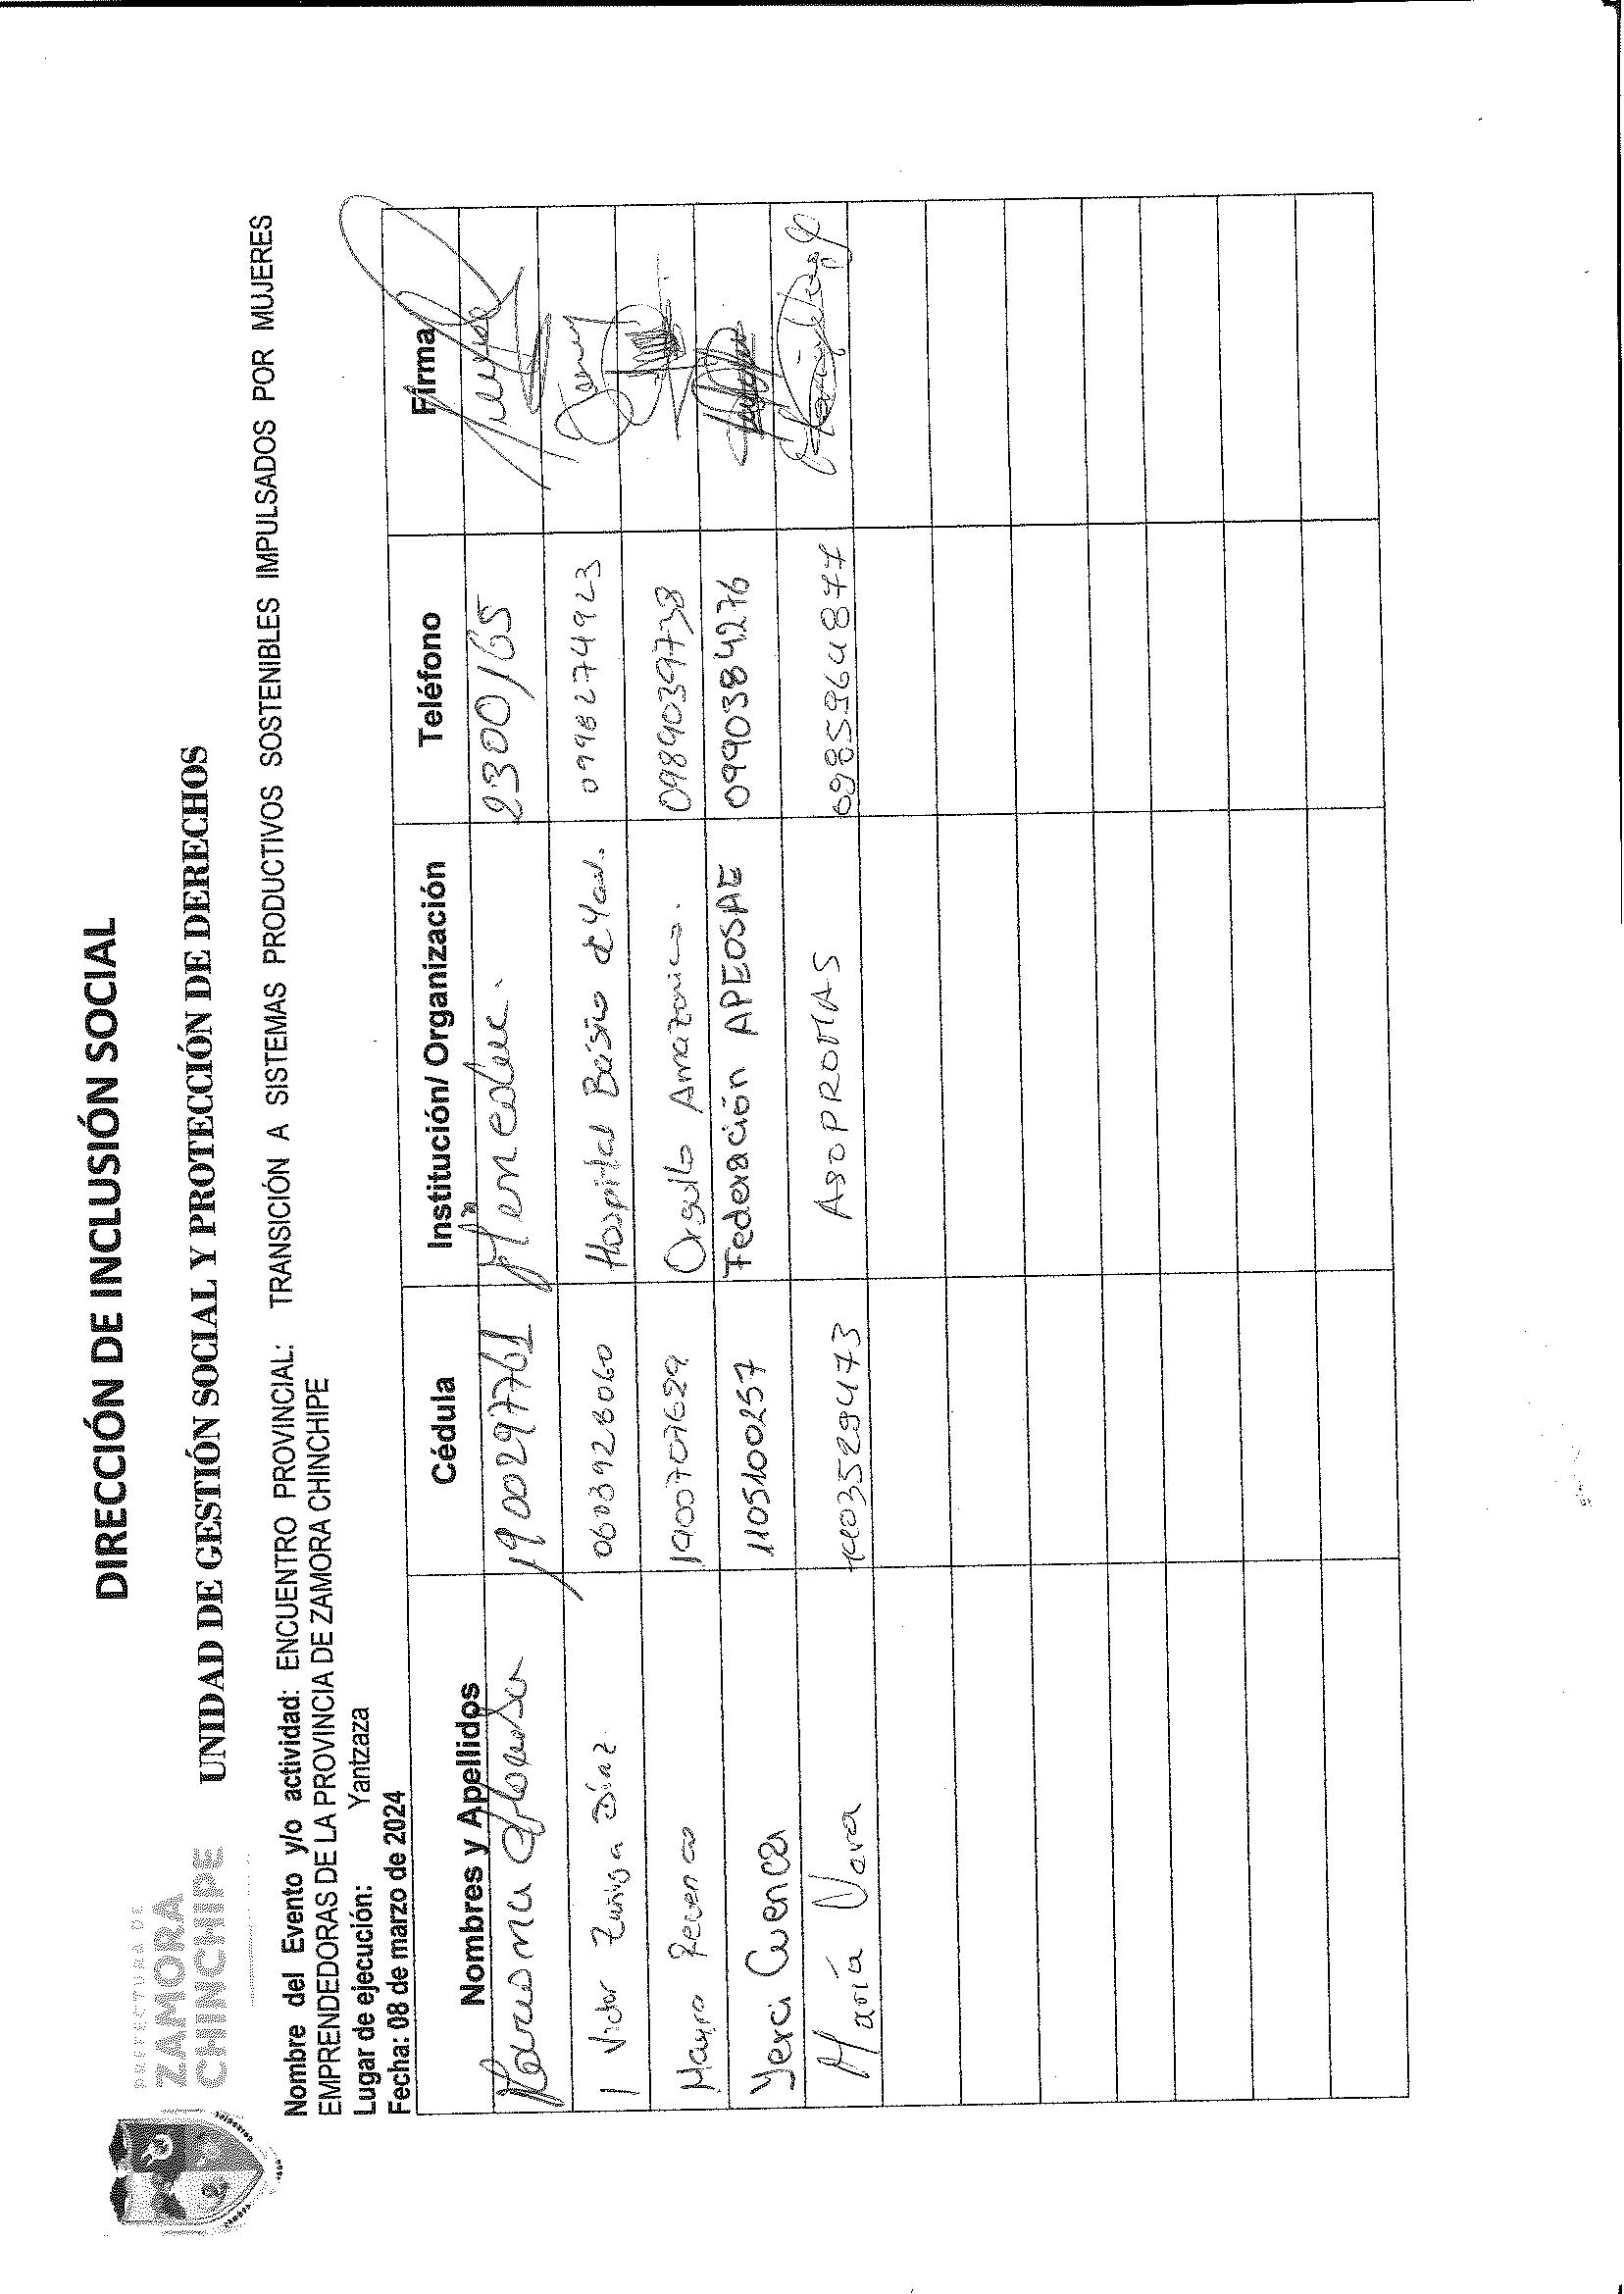 PREFECTURA DE
ZAMORA
CHINCHIPE
DIRECCIÓN DE INCLUSIÓN SOCIAL
UNIDAD DE GESTIÓN SOCIAL Y PROTECCIÓN DE DERECHOS
Nombre del Evento y/o actividad: ENCUENTRO PROVINCIAL: TRANSICIÓN A SISTEMAS PRODUCTIVOS SOSTENIBLES IMPULSADOS POR MUJERES
EMPRENDEDORAS DE LA PROVINCIA DE ZAMORA CHINCHIPE
Lugar de ejecución: Yantzaza
Fecha: 08 de marzo de 2024
Nombres y Apellidos Cédula Institución/ Organización Teléfono Firma
1900297761 2300165
Victor Zuñiga Díaz 0603928060 Hospital Básico 0998274923
Mayra 1900707629 Orgullo Amazónico. 0989039738
Yexci Cuenca 1105100257 Federación APEOSAE 0990384276
María Vera 1103529473 ASOPROMAS 0985964877